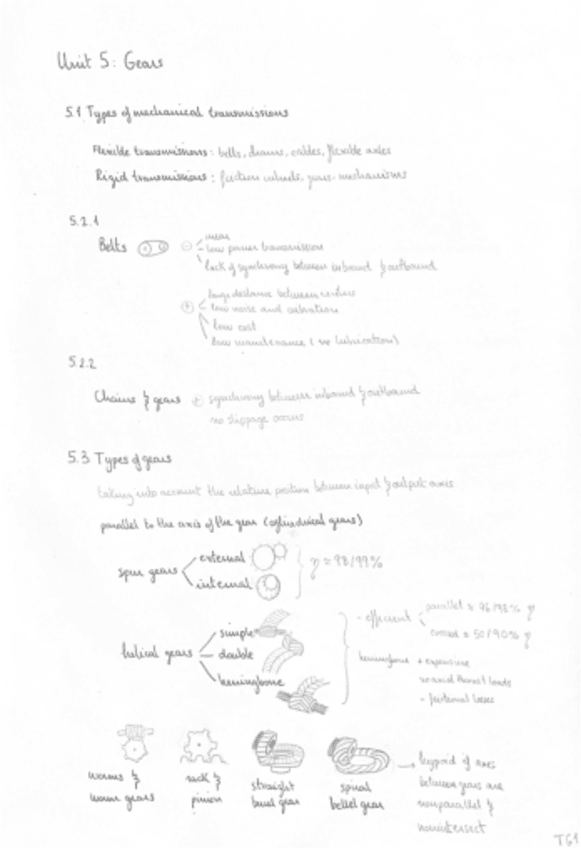 Unit 5: Gears
5.1 Types of mechanical transmissions
Flexible transmissions: belts, chains, cables, flexible axles
Rigid transmissions: friction wheels, gears, mechanisms
5.2.1
Belts ⊖ wear
low power transmission
lack of synchrony between inbound & outbound
⊕ large distance between centers
low noise and vibration
low cost
low maintenance (no lubrication)
5.2.2
Chains & gears ⊕ synchrony between inbound & outbound
no slippage occurs
5.3 Types of gears
taking into account the relative position between input & output axis
parallel to the axis of the gear (cylindrical gears)
spur gears external
internal
η = 98/99%
helical gears simple
double
herringbone
- efficient parallel = 96/98% η
crossed = 50/90% η
herringbone + expensive
no axial thrust loads
- frictional losses
worms & worm gears
rack & pinion
straight bevel gear
spiral bevel gear
→ hypoid if axes
between gears are
nonparallel &
nonintersect
TG1